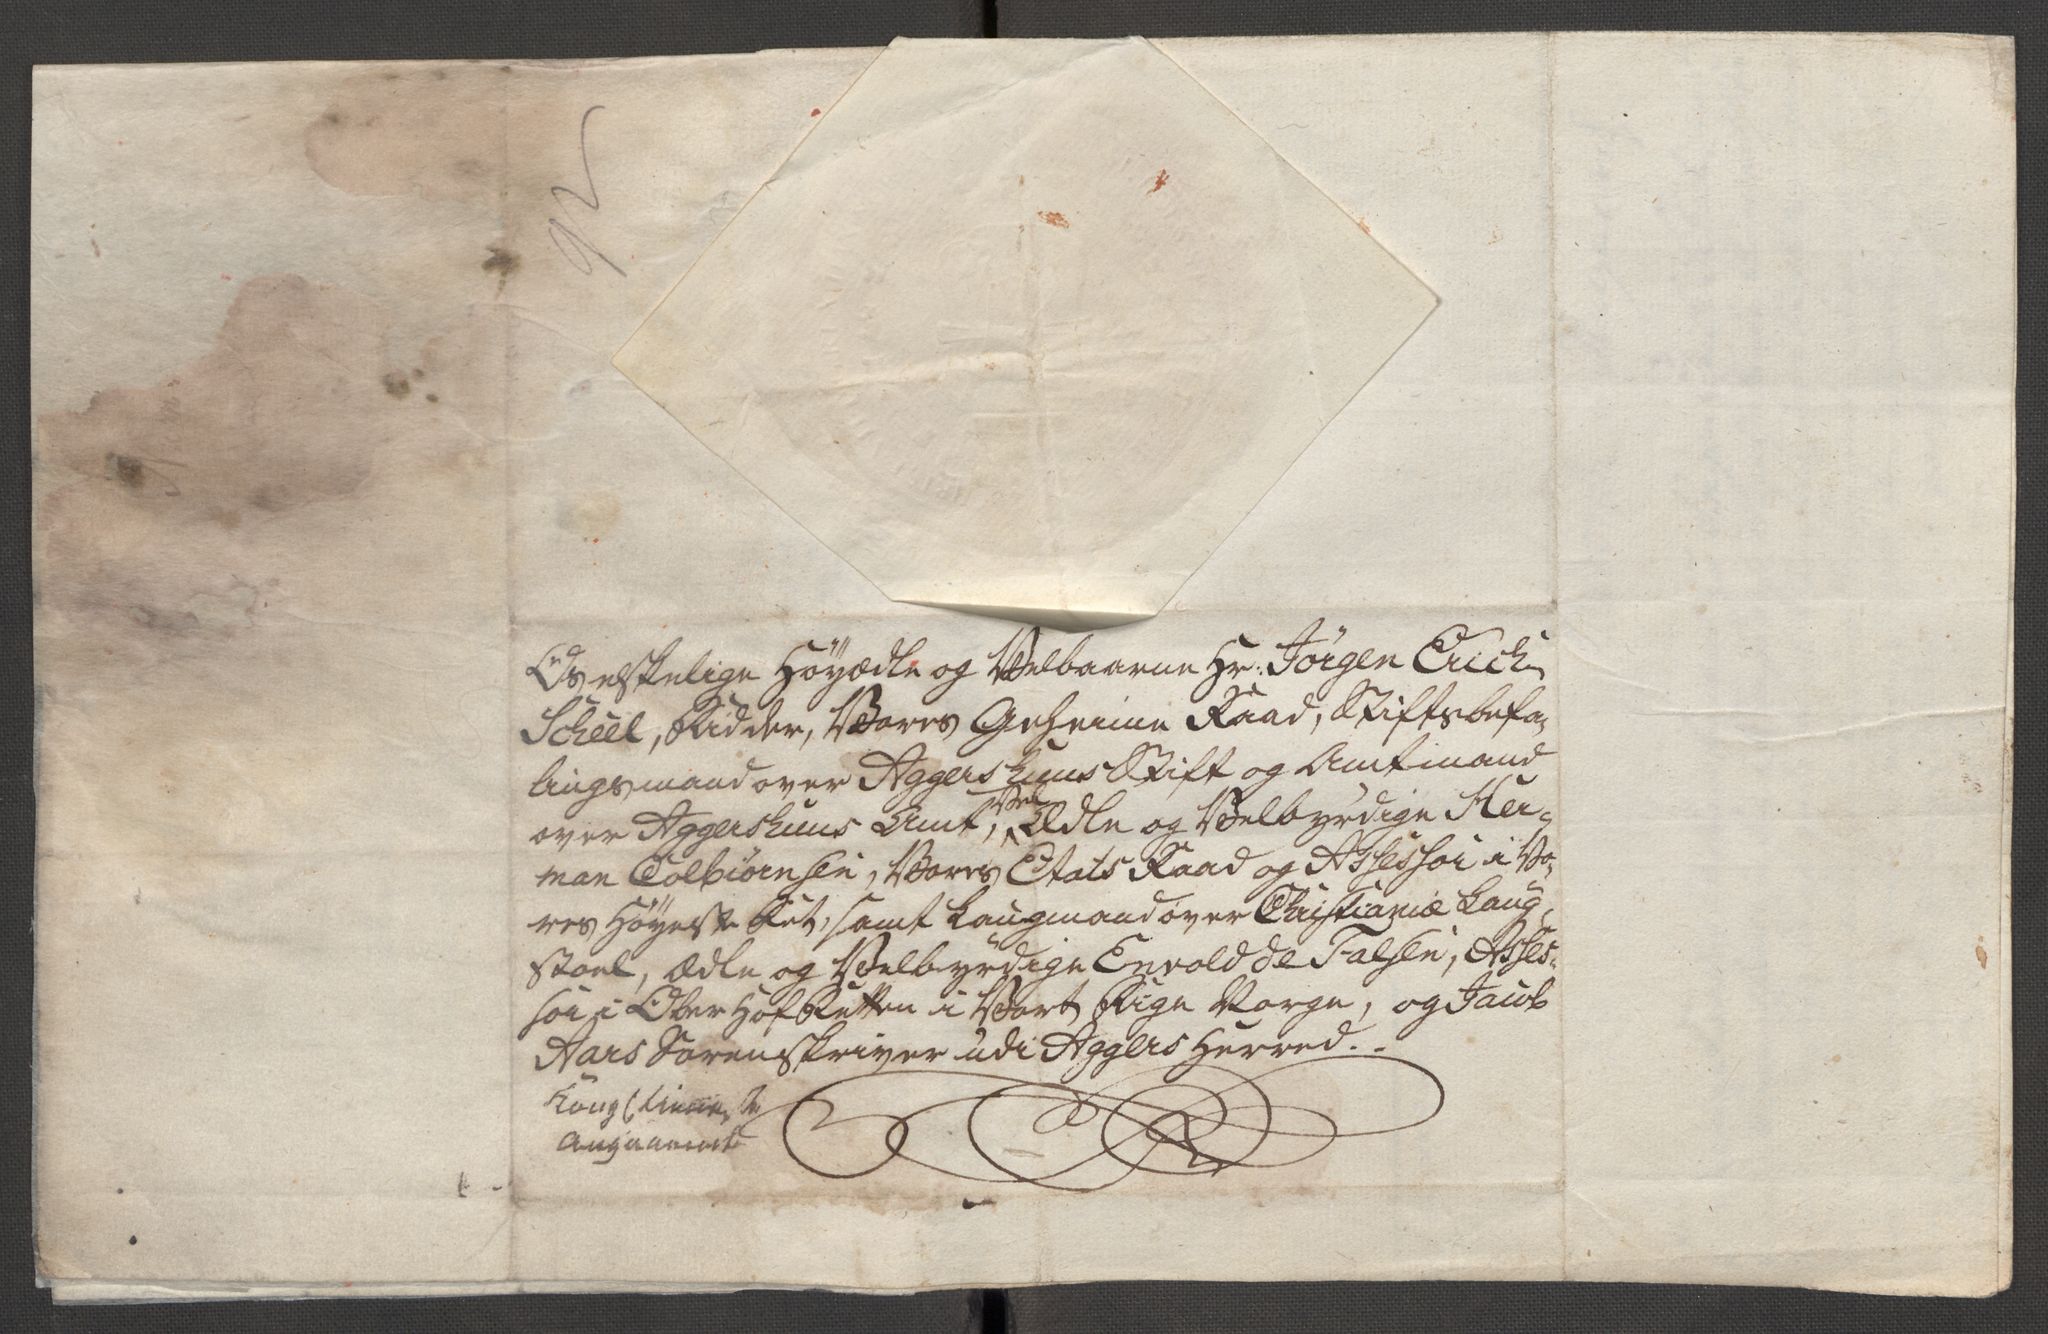 92
Os elskelige Höyædle og Velbaarne Hr: Jörgen Erich
Scheel, Ridder, Vores Geheime Raad, Stiftsbefa-
lingsmand over Aggershuus Stift og Amtmand
over Aggershuus Amt, Vel Ædle og Velbyrdige Her-
man Colbiörnsen, Vores Etats Raad og Assessor i Vo-
res Höyeste Ret, samt Laugmand over Christianiæ Laug-
stoel, Ædle og Velbyrdige Envold de Falsen, Asses-
sor i Ober Hof Retten i Vort Rige Norge, og Jacob
Aars Sorenskriver udi Aggers Herred.